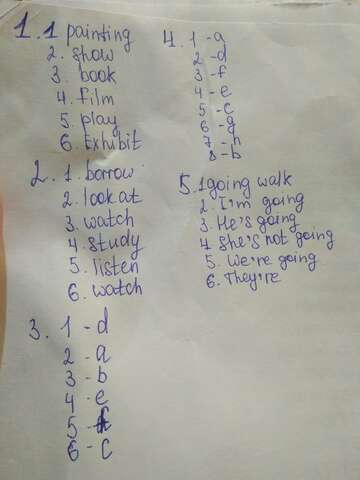 1. 1 painting
2. show
3. book
4. film
5. play
6. Exhibit
2. 1. borrow
2. look at
3. watch
4. study
5. listen
6. watch
3. 1 - d
2 - a
3 - b
4 - e
5 - f
6 - c
4. 1 - a
2 - d
3 - f
4 - e
5 - c
6 - g
7 - h
8 - b
5. 1 going walk
2. I'm going
3. He's going
4 She's not going
5. We're going
6. They're